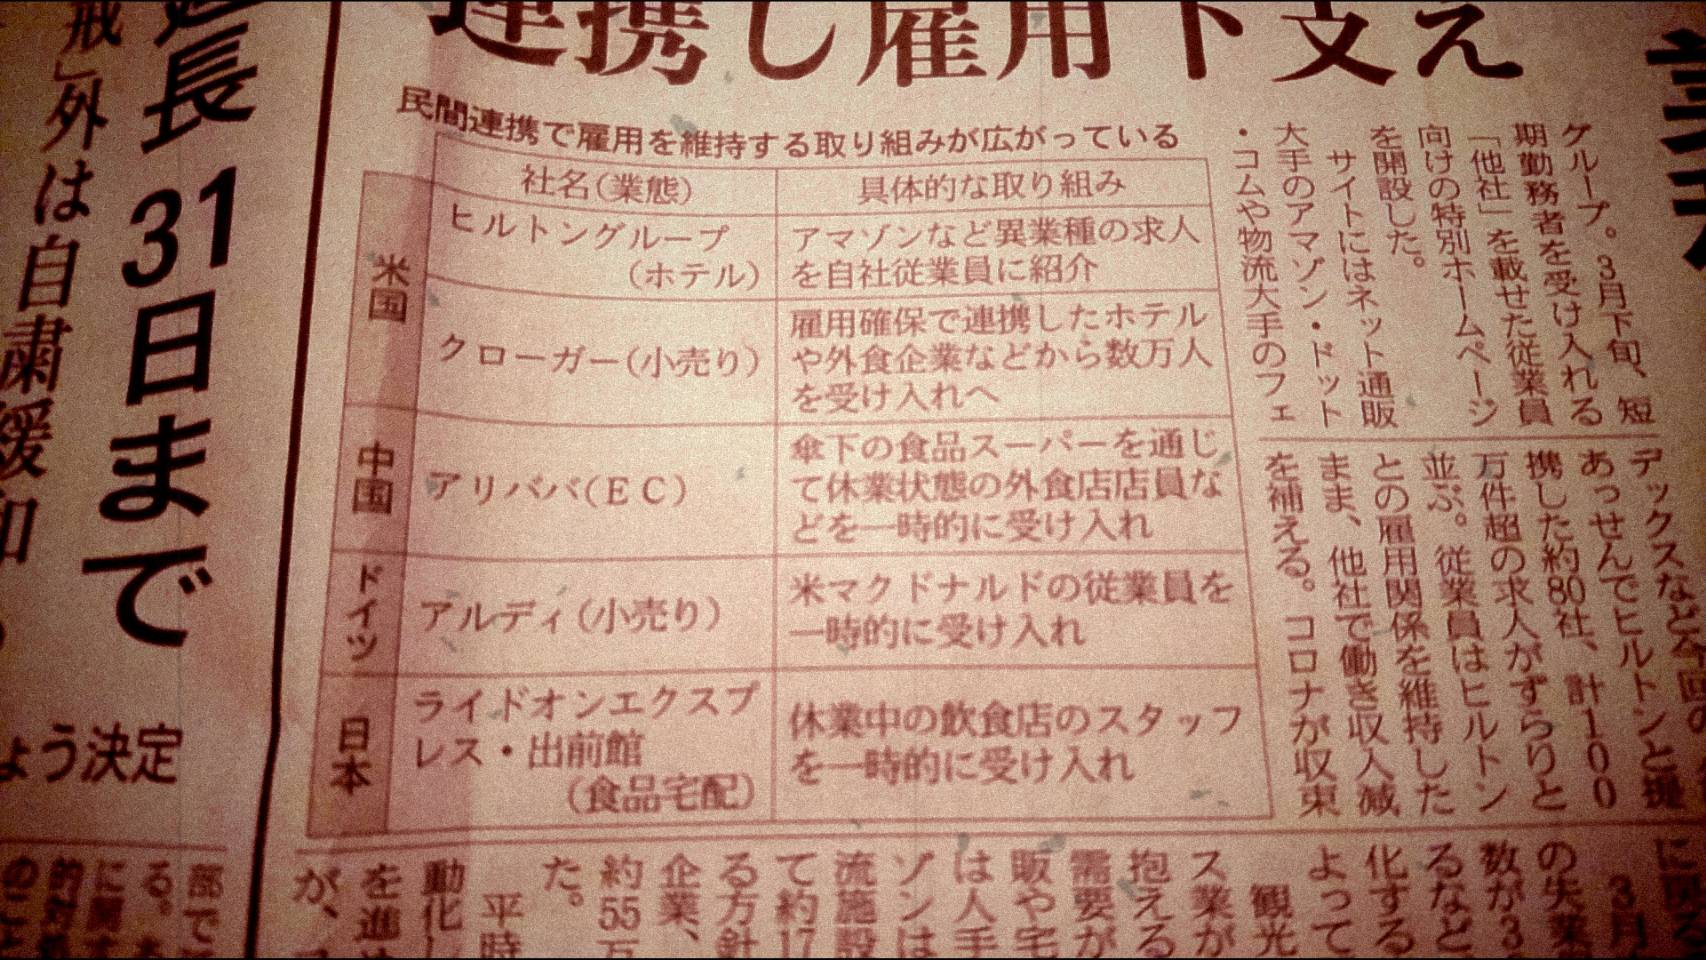 連携し雇用下支え
民間連携で雇用を維持する取り組みが広がっている
社名(業態)
具体的な取り組み
米国
ヒルトングループ
(ホテル)
アマゾンなど異業種の求人
を自社従業員に紹介
クローガー(小売り)
雇用確保で連携したホテル
や外食企業などから数万人
を受け入れへ
中国
アリババ(EC)
傘下の食品スーパーを通じ
て休業状態の外食店店員な
どを一時的に受け入れ
ドイツ
アルディ(小売り)
米マクドナルドの従業員を
一時的に受け入れ
日本
ライドオンエクスプ
レス・出前館
(食品宅配)
休業中の飲食店のスタッフ
を一時的に受け入れ
グループ。3月下旬、短
期勤務者を受け入れる
「他社」を載せた従業員
向けの特別ホームページ
を開設した。
サイトにはネット通販
大手のアマゾン・ドット
・コムや物流大手のフェ
デックスなど今回の
あっせんでヒルトンと提
携した約80社、計100
万件超の求人がずらりと
並ぶ。従業員はヒルトン
との雇用関係を維持した
まま、他社で働き収入減
を補える。コロナが収束
3月
の失業
数が3
るなど
化する
よって
観光
ス業が
抱える
需要が
販や宅
は人手
ゾンは
流施設
て約17
る方針
企業、
約55万
た。
平時
動化し
を進め
が、
長31日まで
戒」外は自粛緩和
ょう決定
部で
る。
に関
的
のこと